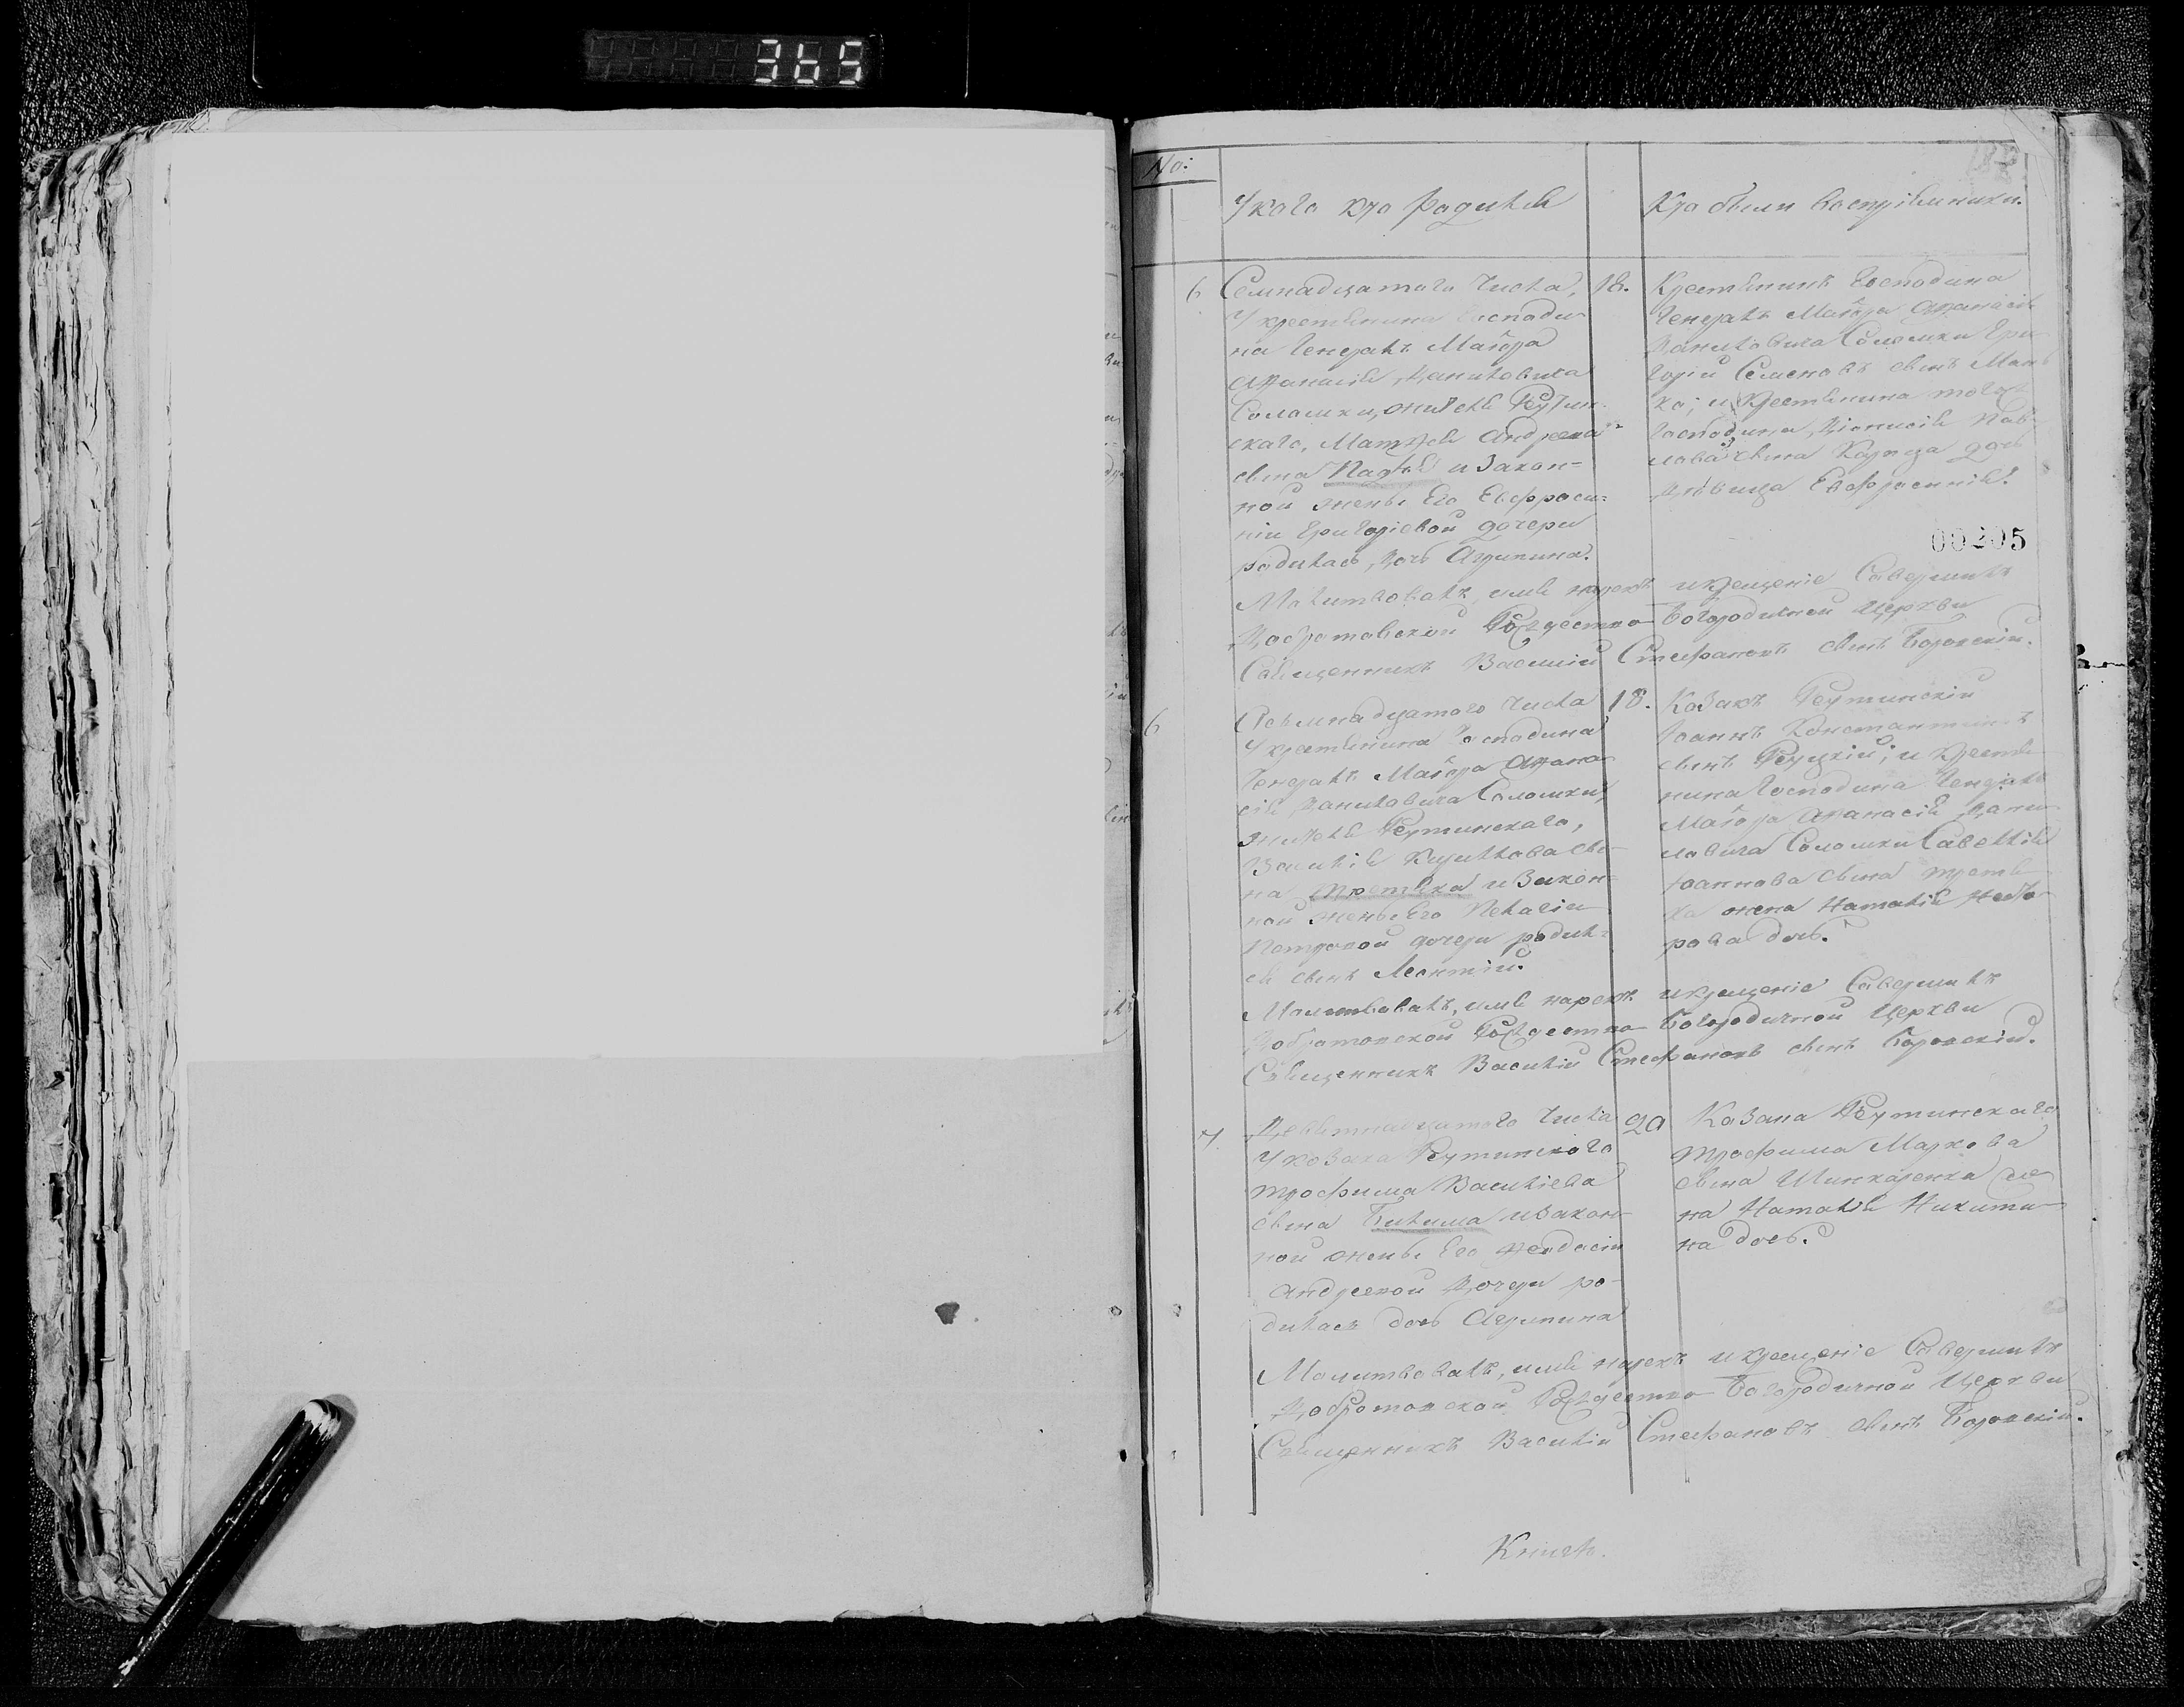 365
No:
У кого кто родился
Кто были воспріемники.
6
Семнадцатаго числа,
У крестьянина Господи-
на Генералъ Маіора
Афанасія Даниловича
Соломки, жителя Реутин-
скаго, Матфея Андреева
сына и закон-
ной жены его Евфроси-
ніи Григоріевой дочери
родилась дочь Агрипина.
18.
Крестьянинъ Господина
Генералъ Маіора Афанасія
Даниловича Соломки Гри-
горій Семеновъ сынъ
и крестьянина того
Господина, Діонисія Пав-
лова сына дочь
девица Евфросинія.
00205
Молитвовалъ, имя нарекъ и крещеніе Совершилъ
Добротовской Рождество-Богородичной Церкви
Священникъ Василій Стефановъ сынъ Боровскій.
6
Семнадцатого числа
У крестьянина Господина
Генералъ Маіора Афана-
сія Даниловича Соломки,
жителя Реутинскаго,
Василія Кириллова сы-
на и закон-
ной жены его Пелагіи
Петровой дочери родил-
ся сынъ Леонтій.
18.
Козакъ Реутинскій
Іоаннъ Константиновъ
сынъ Реуцкій; и крестья-
нина Господина Генералъ
Маіора Афанасія Дани-
ловича Соломки Савелія
Іоаннова сына
жена Наталія
дочь.
Молитвовалъ, имя нарекъ и крещеніе Совершилъ
Добротовской Рождество-Богородичной Церкви
Священникъ Василій Стефановъ сынъ Боровскій.
7
Девятнадцатого числа
У козака Реутинского
Трофима Василіева
сына и закон-
ной жены его Феодосіи
Андреевой дочери ро-
дилась дочь Агрипина
20
Козака Реутинскаго
Трофима Маркова
сына Шинкаренка же-
на Наталія Никити-
на дочь.
Молитвовалъ, имя нарекъ и крещеніе Совершилъ
Добротовской Рождество-Богородичной Церкви
Священникъ Василій Стефановъ сынъ Боровскій.